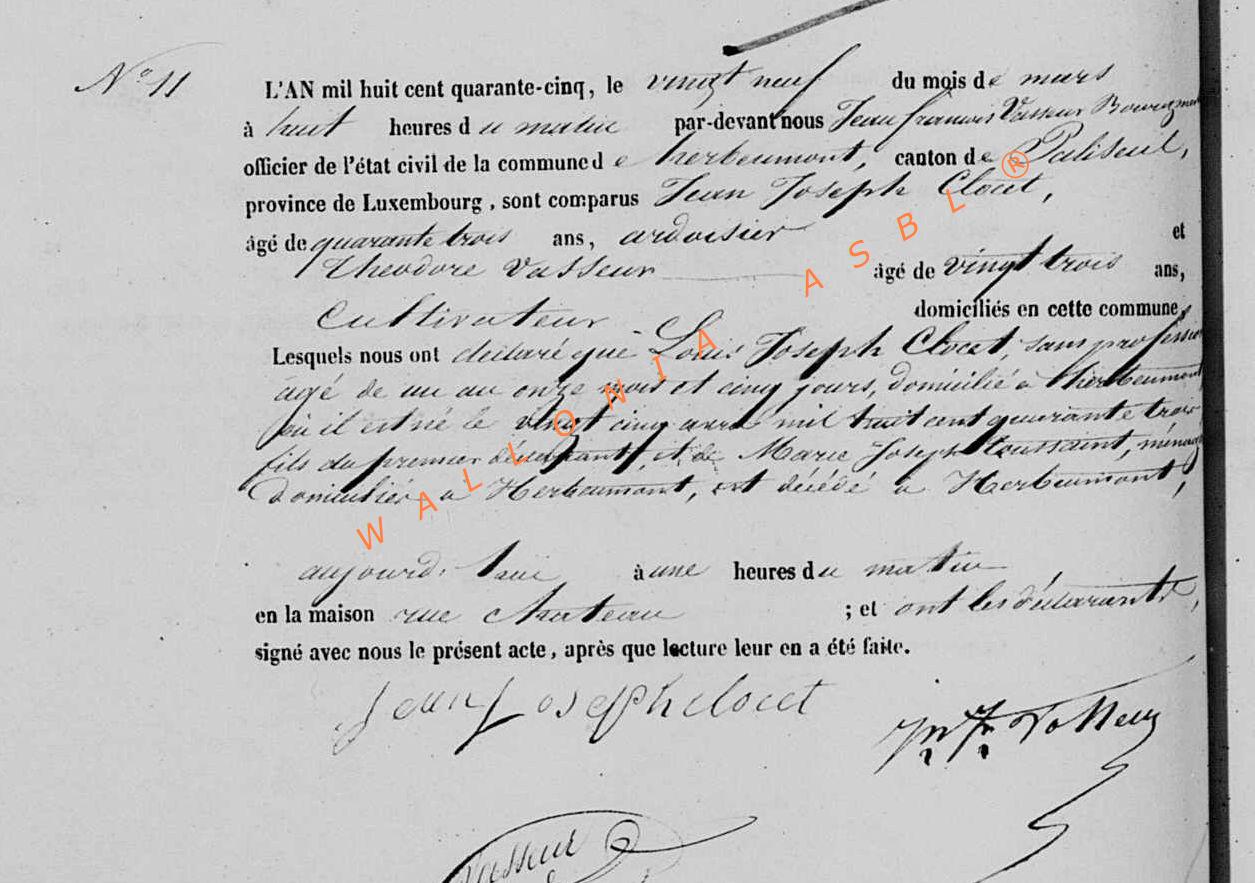 N° 11
L'AN mil huit cent quarante-cinq, le vingt neuf du mois de mars
à huit heures du matin par-devant nous Jean françois Vasseur Bourgmes
officier de l'état civil de la commune de herbeumont, canton de Paliseul,
province de Luxembourg, sont comparus Jean Joseph Clocet,
âgé de quarante trois ans, ardoisier et
theodore Vasseur âgé de vingt trois ans,
Cultivateur domiciliés en cette commune,
Lesquels nous ont déclaré que Louis Joseph Clocet, sans profession
agé de un an onze mois et cinq jours, domicilié à herbeumont
où il est né le vingt cinq avril mil huit cent quarante trois
fils du premier déclarant, et de Marie Joseph toussaint, ménag
domiciliés a Herbeumont, est décédé a Herbeumont,
aujourd'hui à une heures du matin
en la maison rue chateau ; et ont les déclarants,
signé avec nous le présent acte, après que lecture leur en a été faite.
Jean Joseph clocet
Jn Fr Vasseur
Vasseur
WALLONIA ASBL ®